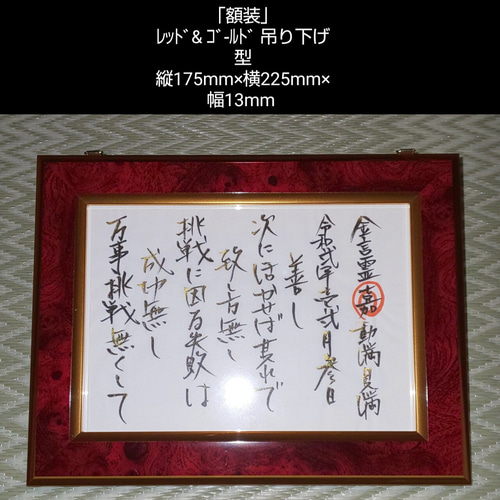 「額装」
ﾚｯﾄﾞ& ｺﾞｰﾙﾄﾞ 吊り下げ
型
縦175mm×横225mm×
幅13mm
万事挑戦無くして
成功無し
挑戦に因る失敗は
致し方無し
次に活かせば其れで
善し
令和弐年壱弐月参日
金言霊 嘉